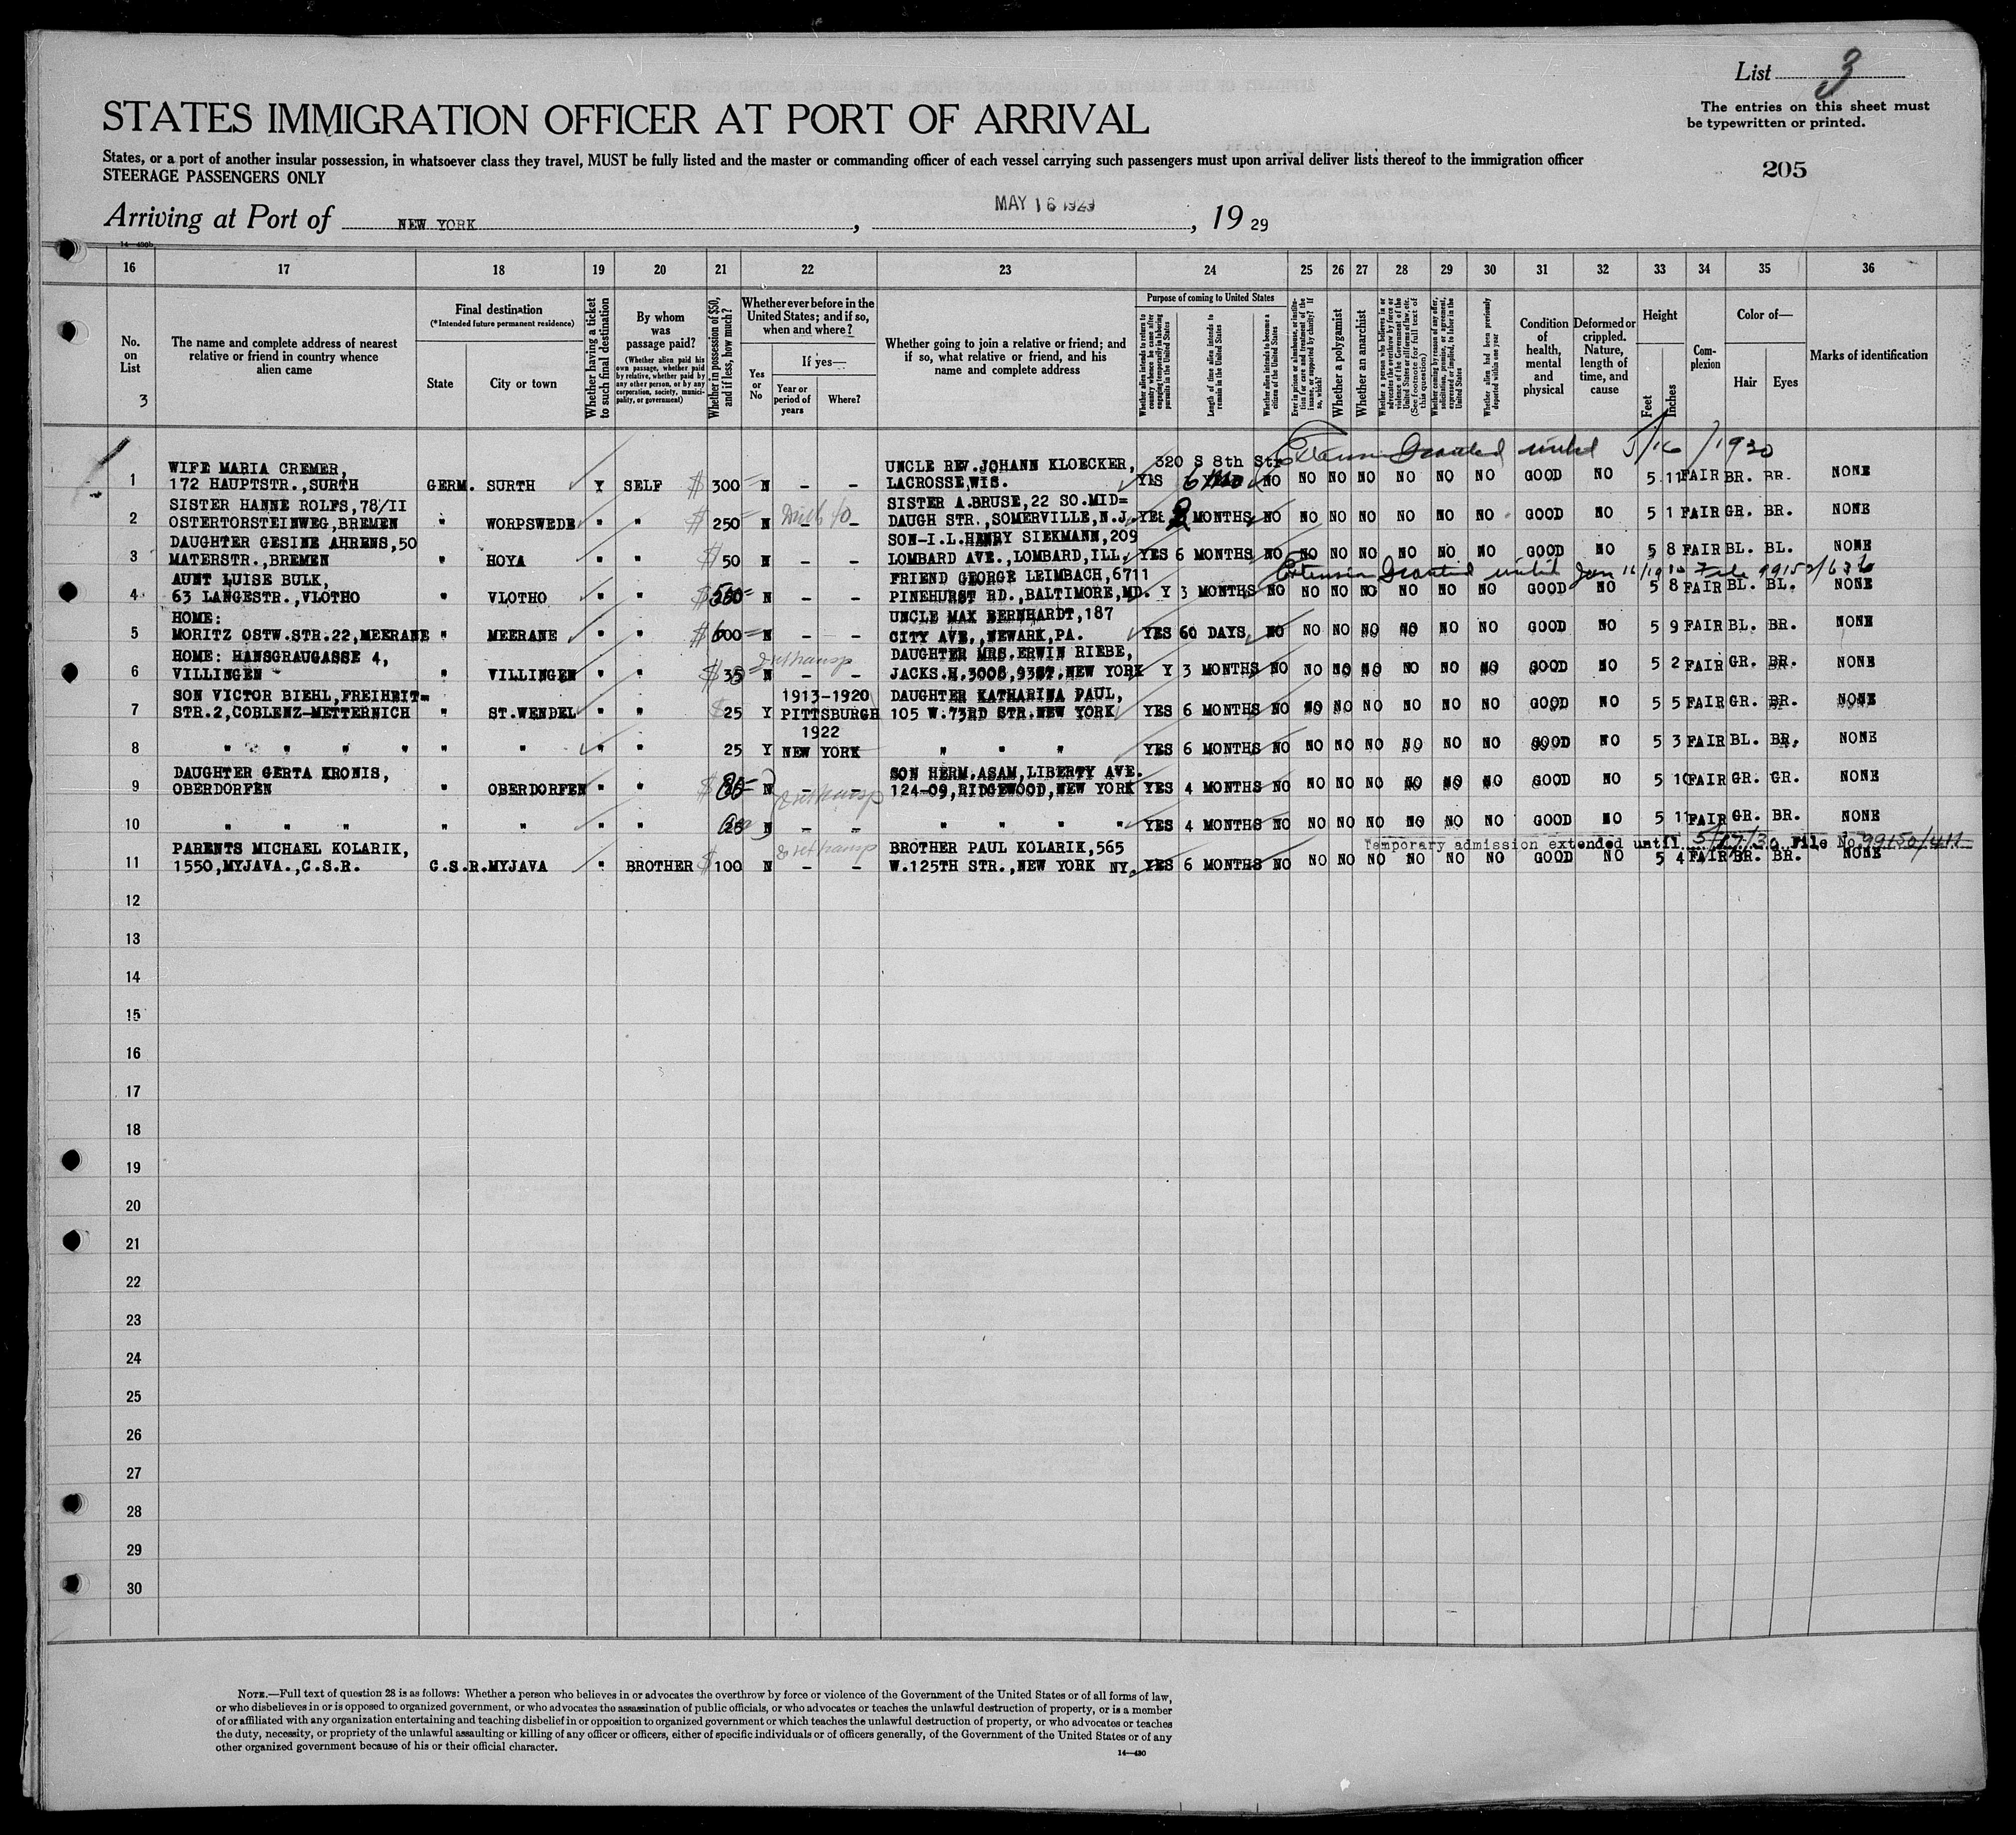 List 3
The entries on this sheet must
be typewritten or printed.
STATES IMMIGRATION OFFICER AT PORT OF ARRIVAL
States, or a port of another insular possession, in whatsoever class they travel, MUST be fully listed and the master or commanding officer of each vessel carrying such passengers must upon arrival deliver lists thereof to the immigration officer
STEERAGE PASSENGERS ONLY
205
Arriving at Port of NEW YORK, MAY 16 1929, 19 29
14—430b
16 17 18 19 20 21 22 23 24 25 26 27 28 29 30 31 32 33 34 35 36
No. on List
3
The name and complete address of nearest relative or friend in country whence alien came
Final destination
(*Intended future permanent residence)
State
City or town
Whether having a ticket to such final destination
By whom was passage paid?
(Whether alien paid his own passage, whether paid by relative, whether paid by any other person, or by any corporation, society, municipality, or government)
Whether in possession of $50, and if less, how much?
Whether ever before in the United States; and if so, when and where?
Yes or No
If yes—
Year or period of years
Where?
Whether going to join a relative or friend; and if so, what relative or friend, and his name and complete address
Purpose of coming to United States
Whether alien intends to return to country whence he came after engaging temporarily in laboring pursuits in the United States
Length of time alien intends to remain in the United States
Whether alien intends to become a citizen of the United States
Ever in prison or almshouse, or institution for care and treatment of the insane, or supported by charity? If so, which?
Whether a polygamist
Whether an anarchist
Whether a person who believes in or advocates the overthrow by force or violence of the Government of the United States or all forms of law, etc. (See footnote for full text of this question)
Whether coming by reason of any offer, solicitation, promise, or agreement, expressed or implied, to labor in the United States
Whether alien had been previously deported within one year
Condition of health, mental and physical
Deformed or crippled. Nature, length of time, and cause
Height
Feet
Inches
Complexion
Color of—
Hair
Eyes
Marks of identification
Extension Granted until 5/16/1930
WIFE MARIA CREMER, UNCLE REV.JOHANN KLOECKER, 320 S 8th Str
1 172 HAUPTSTR.,SURTH GERM. SURTH Y SELF $ 300 N – – LACROSSE,WIS. YES 6 mo NO NO NO NO NO NO NO GOOD NO 5 11 FAIR BR. BR. NONE
SISTER HANNE ROLFS,78/II SISTER A.BRUSE,22 SO.MID=
2 OSTERTORSTEINWEG,BREMEN " WORPSWEDE " " $ 250 N – – DAUGH STR.,SOMERVILLE,N.J. YES MONTHS NO NO NO NO NO NO NO GOOD NO 5 1 FAIR GR. BR. NONE
DAUGHTER GESINE AHRENS,50 SON-I.L.HENRY SIEKMANN,209
3 MATERSTR.,BREMEN " HOYA " " $ 50 N – – LOMBARD AVE.,LOMBARD,ILL. YES 6 MONTHS NO NO NO NO NO NO NO GOOD NO 5 8 FAIR BL. BL. NONE
Extension Granted until Jan 16/19
AUNT LUISE BULK, FRIEND GEORGE LEIMBACH,6711
4 63 LANGESTR.,VLOTHO " VLOTHO " " $ N – – PINEHURST RD.,BALTIMORE,MD. Y 3 MONTHS NO NO NO NO NO NO NO GOOD NO 5 8 FAIR BL. BL. NONE
HOME: UNCLE MAX BERNHARDT,187
5 MORITZ OSTW.STR.22,MEERANE " MEERANE " " $ 600 N – – CITY AVE.,NEWARK,PA. YES 60 DAYS NO NO NO NO NO NO NO GOOD NO 5 9 FAIR BL. BR. NONE
HOME: HANSGRAUGASSE 4, DAUGHTER MRS.ERWIN RIEBE,
6 VILLINGEN " VILLINGEN " " $ 35 N – – JACKS.H.3008,93ST.NEW YORK Y 3 MONTHS NO NO NO NO NO NO NO GOOD NO 5 2 FAIR GR. BR. NONE
SON VICTOR BIEHL,FREIHEIT= 1913-1920 DAUGHTER KATHARINA PAUL,
7 STR.2,COBLENZ-METTERNICH " ST.WENDEL " " 25 Y PITTSBURGH 105 W.73RD STR.NEW YORK YES 6 MONTHS NO NO NO NO NO NO NO GOOD NO 5 5 FAIR GR. BR. NONE
1922
8 " " " " " " " " 25 Y NEW YORK " " " YES 6 MONTHS NO NO NO NO NO NO NO GOOD NO 5 3 FAIR BL. BR. NONE
DAUGHTER GERTA KRONIS, SON HERM.ASAM,LIBERTY AVE.
9 OBERDORFEN " OBERDORFEN " " $ N – – 124-09,RIDGEWOOD,NEW YORK YES 4 MONTHS NO NO NO NO NO NO NO GOOD NO 5 10 FAIR GR. GR. NONE
10 " " " " " " " 25 N – – " " " " YES 4 MONTHS NO NO NO NO NO NO NO GOOD NO 5 11 FAIR GR. BR. NONE
PARENTS MICHAEL KOLARIK, BROTHER PAUL KOLARIK,565 Temporary admission extended until 5/17/30 File No. 99150/411
11 1550,MYJAVA.,C.S.R. C.S.R. MYJAVA " BROTHER $ 100 N – – W.125TH STR.,NEW YORK NY. YES 6 MONTHS NO NO NO NO NO NO NO GOOD NO 5 4 FAIR BR. BR. NONE
12
13
14
15
16
17
18
19
20
21
22
23
24
25
26
27
28
29
30
NOTE.—Full text of question 28 is as follows: Whether a person who believes in or advocates the overthrow by force or violence of the Government of the United States or of all forms of law,
or who disbelieves in or is opposed to organized government, or who advocates the assassination of public officials, or who advocates or teaches the unlawful destruction of property, or is a member
of or affiliated with any organization entertaining and teaching disbelief in or opposition to organized government or which teaches the unlawful destruction of property, or who advocates or teaches
the duty, necessity, or propriety of the unlawful assaulting or killing of any officer or officers, either of specific individuals or of officers generally, of the Government of the United States or of any
other organized government because of his or their official character.
14—430